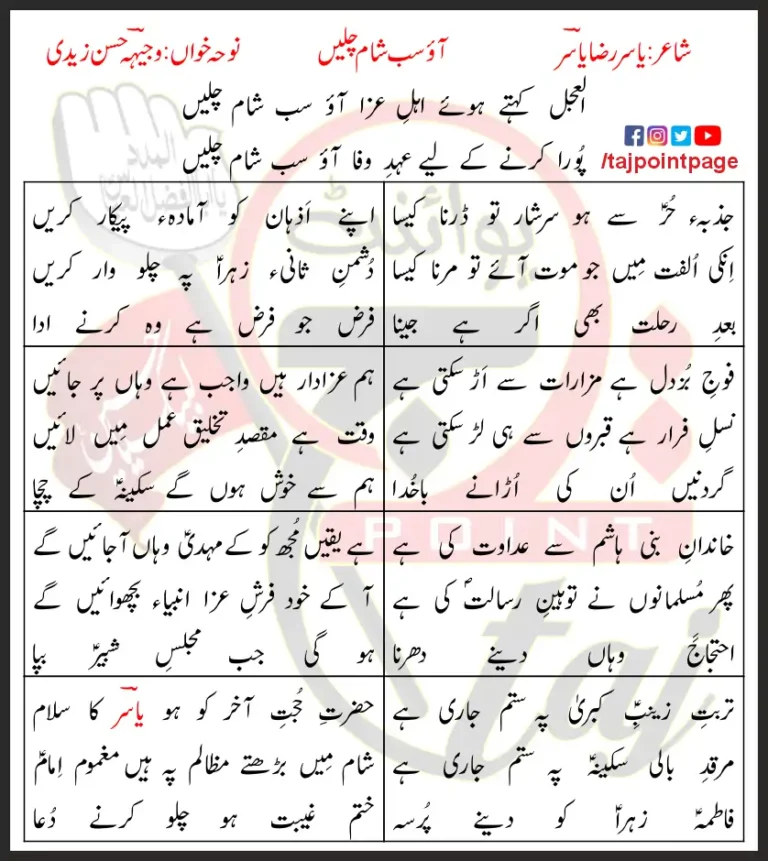 شاعر: یاسر رضا یاسرؔ
آؤ سب شام چلیں
نوحہ خواں: وجیہہ حسن زیدی
العجل کہتے ہوئے اہلِ عزا آؤ سب شام چلیں
پُورا کرنے کے لیے عہدِ وفا آؤ سب شام چلیں
/tajpointpage
جذبہء حُرؑ سے ہو سرشار تو ڈرنا کیسا
اِنکی اُلفت مِیں جو موت آئے تو مرنا کیسا
بعدِ رحلت بھی اگر ہے جینا
اپنے اَذہان کو آمادہء پیکار کریں
دُشمنِ ثانیء زہراؑ پہ چلو وار کریں
فرض جو فرض ہے وہ کرنے ادا
فوجِ بُزدل ہے مزارات سے اَڑ سکتی ہے
نسلِ فرار ہے قبروں سے ہی لڑ سکتی ہے
گردنیں اُن کی اُڑانے باخُدا
ہم عزادار ہیں واجب ہے وہاں پر جائیں
وقت ہے مقصدِ تخلیق عمل مِیں لائیں
ہم سے خوش ہوں گے سکینہؑ کے چچا
خاندانِ بنی ہاشم سے عداوت کی ہے
پھر مُسلمانوں نے توہینِ رسالتؐ کی ہے
احتجاجََ وہاں دینے دھرنا
ہے یقیں مُجھ کو کے مہدیؑ وہاں آ جائیں گے
آ کے خود فرشِ عزا انبیاء بچھوائیں گے
ہو گی جب مجلسِ شبیرؑ بپا
تربتِ زینبِؑ کبریٰ پہ ستم جاری ہے
مرقدِ بالی سکینہؑ پہ ستم جاری ہے
فاطمہؑ زہراؑ کو دینے پُرسہ
حضرتِ حُجتِ آخر کو ہو یاسرؔ کا سلام
شام مِیں بڑھتے مظالم پہ ہیں مغموم اِمامؑ
ختم غیبت ہو چلو کرنے دُعا
پوائنٹ
POINT
taj